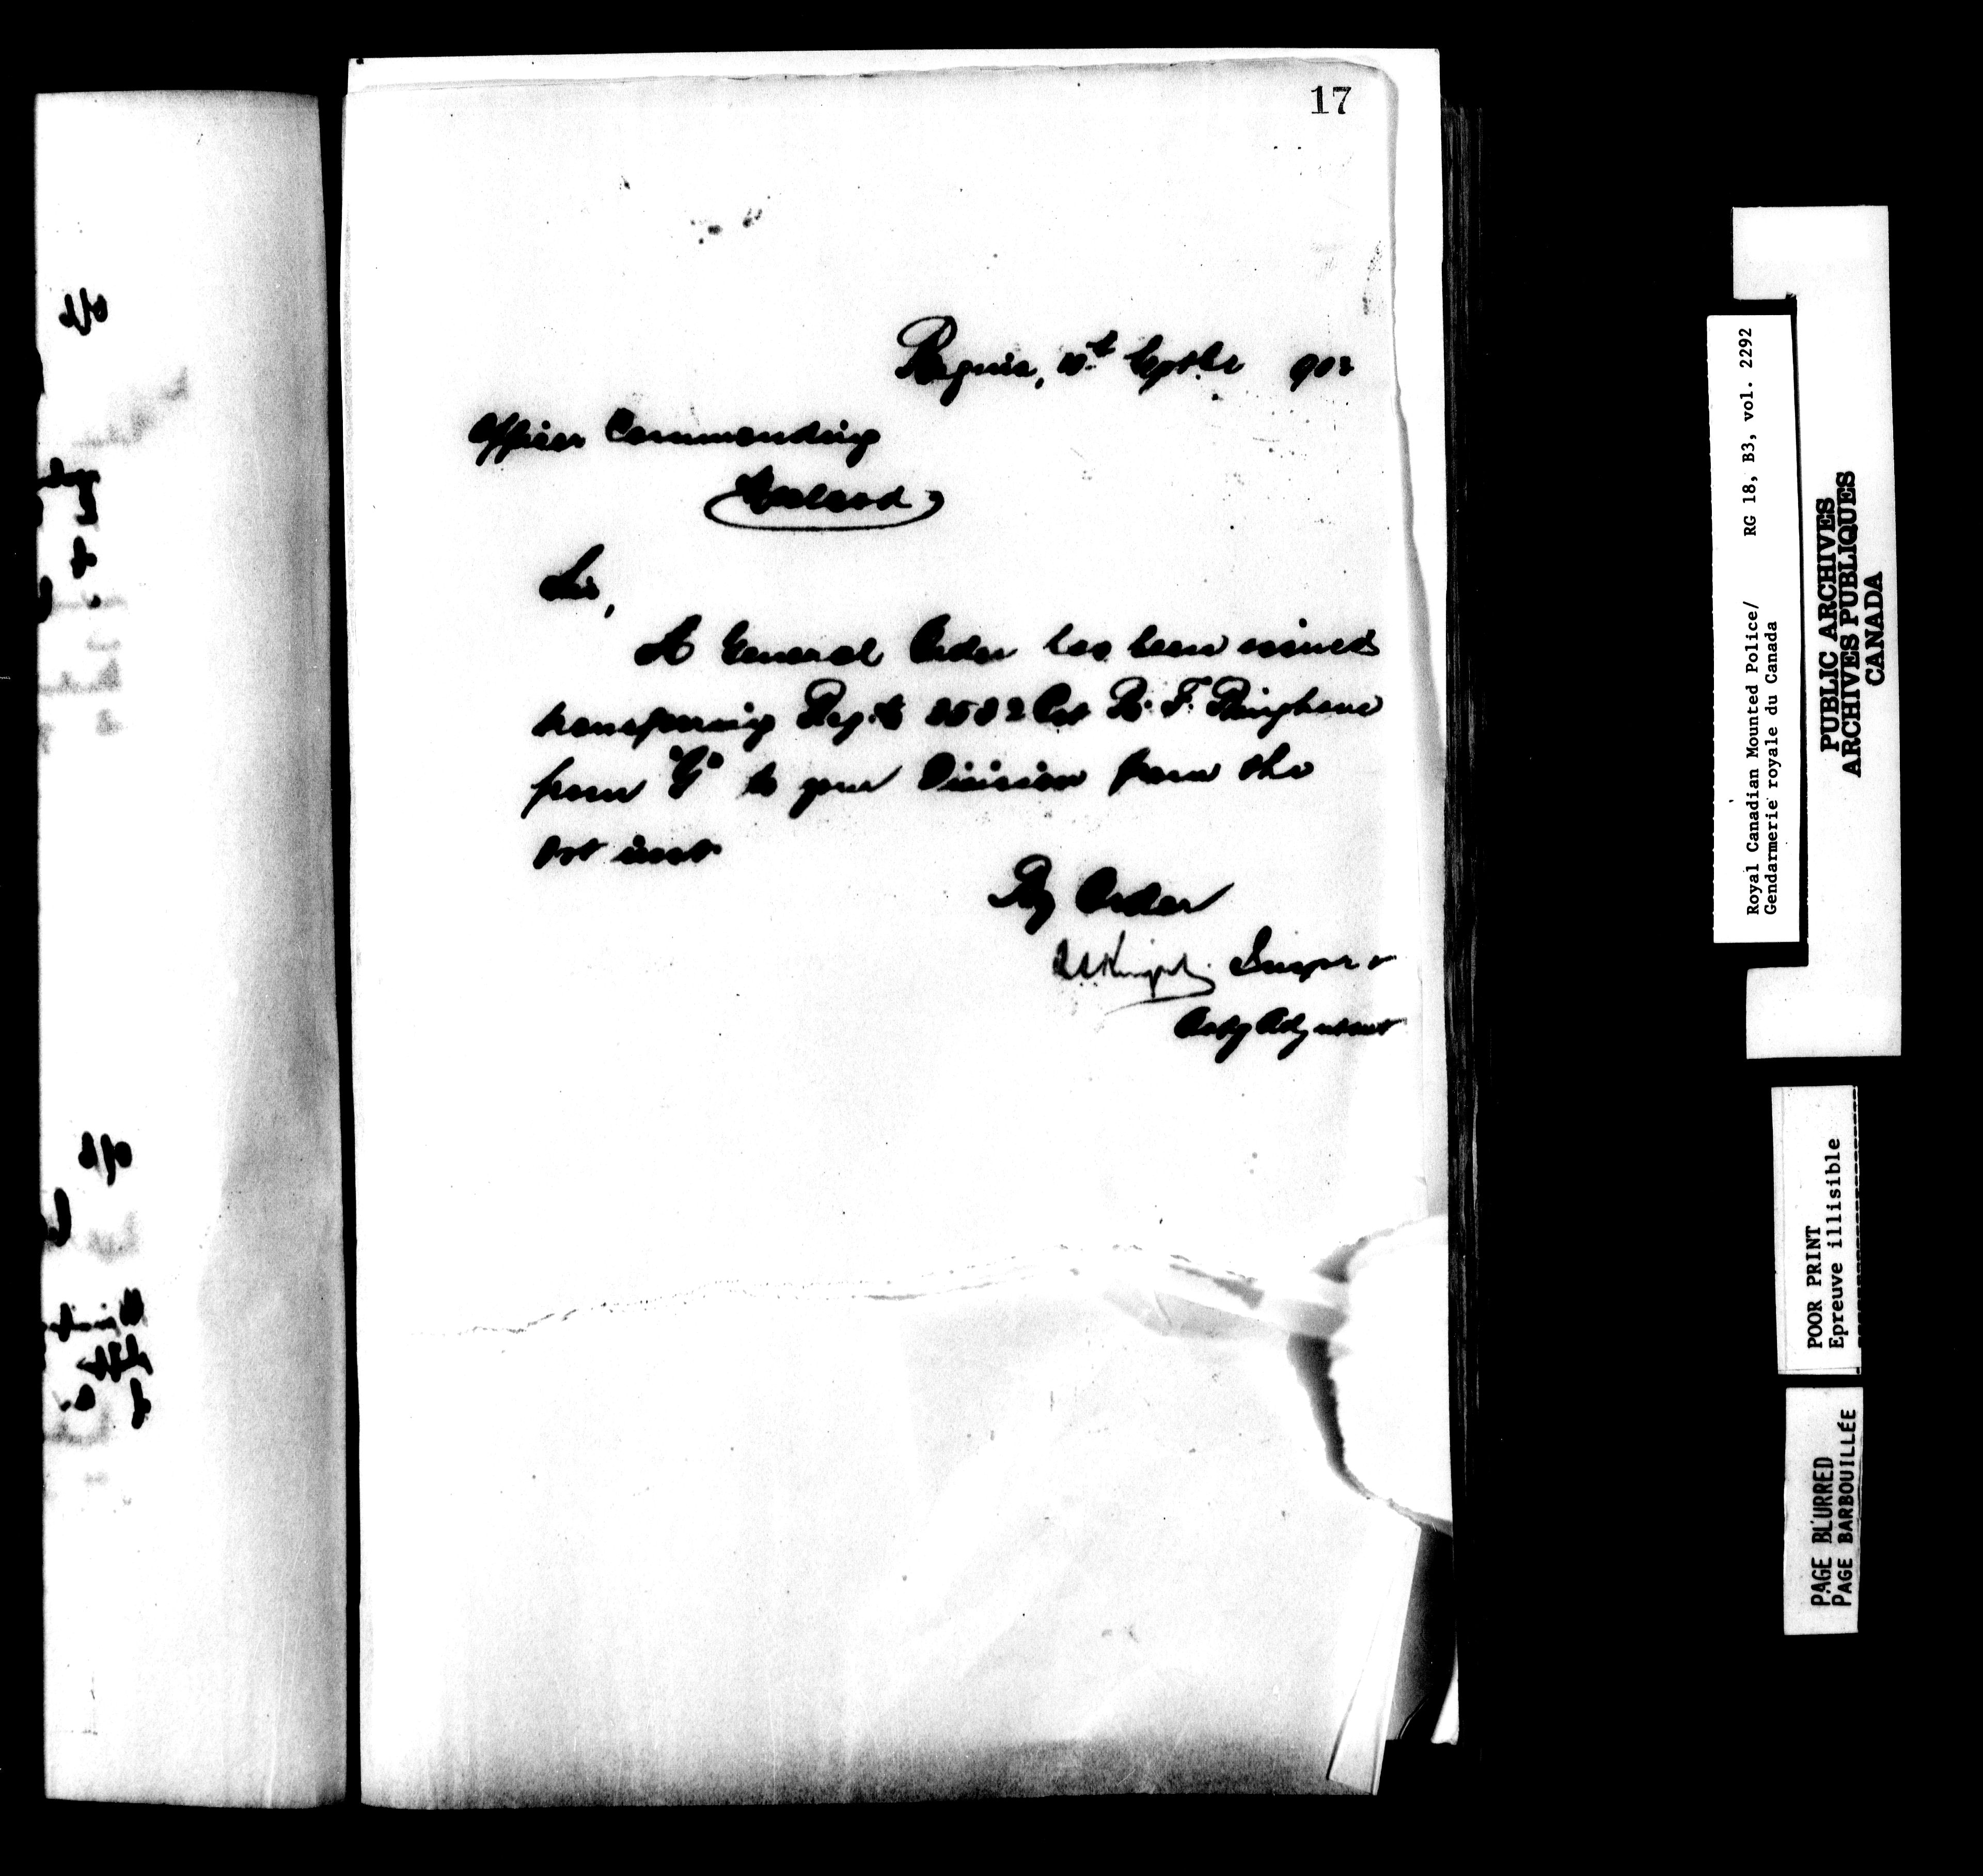 17
Regina, 10th Septbr 902
Officer Commanding
Macleod
Sir,
A General Order has been issued
transferring Reg. No Cst R. F. Bingham
from "G" to your Division from the
1st inst.
By Order
Inspr
Actg Adjutant
Royal Canadian Mounted Police/ RG 18, B3, vol. 2292
Gendarmerie royale du Canada
PUBLIC ARCHIVES
ARCHIVES PUBLIQUES
CANADA
POOR PRINT
Epreuve illisible
PAGE BLURRED
PAGE BARBOUILLÉE